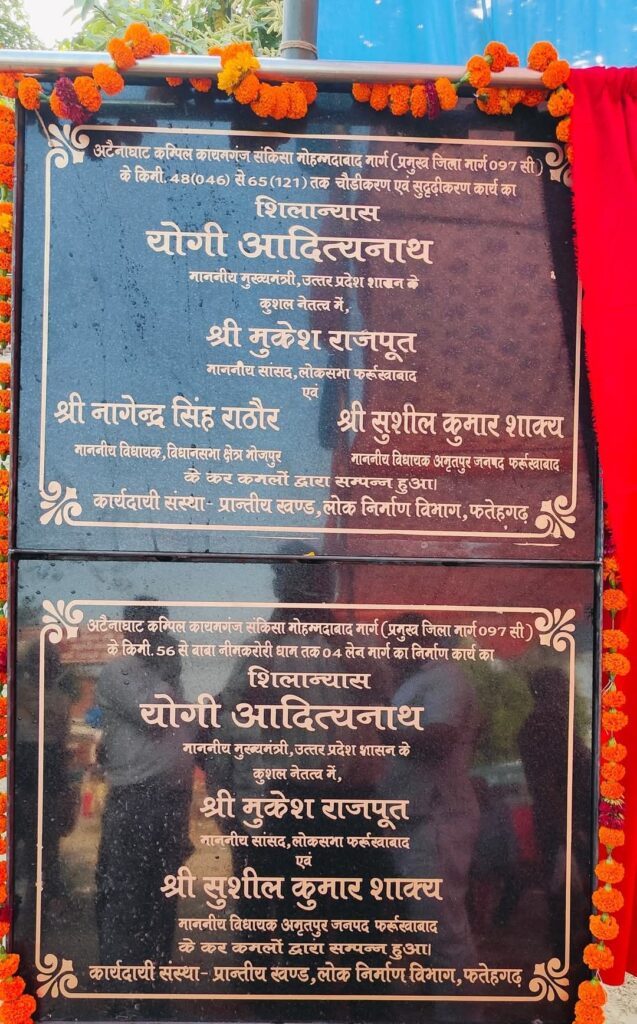 अटैनाघाट कम्पिल कायमगंज संकिसा मोहम्मदाबाद मार्ग (प्रमुख जिला मार्ग 097 सी)
के किमी. 48(046) से 65(121) तक चौडीकरण एवं सुदृढ़ीकरण कार्य का
शिलान्यास
योगी आदित्यनाथ
माननीय मुख्यमंत्री,उत्तर प्रदेश शासन के
कुशल नेतत्व में,
श्री मुकेश राजपूत
माननीय सांसद,लोकसभा फर्रूखाबाद
एवं
श्री नागेन्द्र सिंह राठौर श्री सुशील कुमार शाक्य
माननीय विधायक,विधानसभा क्षेत्र भोजपुर माननीय विधायक अमृतपुर जनपद फर्रूखाबाद
के कर कमलों द्वारा सम्पन्न हुआ।
कार्यदायी संस्था- प्रान्तीय खण्ड,लोक निर्माण विभाग,फतेहगढ़
अटैनाघाट कम्पिल कायमगंज संकिसा मोहम्मदाबाद मार्ग (प्रमुख जिला मार्ग 097 सी)
के किमी. 56 से बाबा नीमकरोरी धाम तक 04 लेन मार्ग का निर्माण कार्य का
शिलान्यास
योगी आदित्यनाथ
माननीय मुख्यमंत्री,उत्तर प्रदेश शासन के
कुशल नेतत्व में,
श्री मुकेश राजपूत
माननीय सांसद,लोकसभा फर्रूखाबाद
एवं
श्री सुशील कुमार शाक्य
माननीय विधायक अमृतपुर जनपद फर्रूखाबाद
के कर कमलों द्वारा सम्पन्न हुआ।
कार्यदायी संस्था- प्रान्तीय खण्ड,लोक निर्माण विभाग,फतेहगढ़